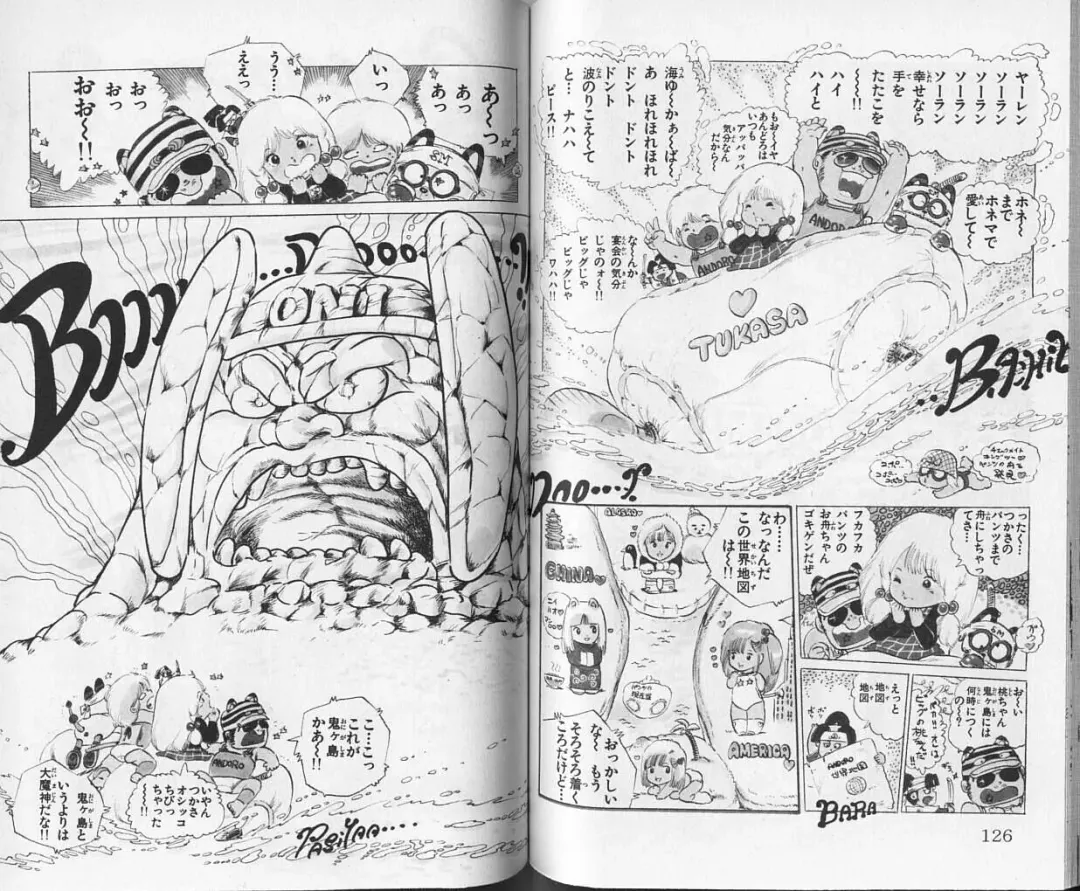 ヤーレン
ソーラン
ソーラン
ソーラン
幸せなら
手を
たたこを
〜!!
ハイ
ハイと
ホネ〜
まで
ホネマで
愛して〜
海ゆ〜かぁ〜ば〜
あ ほれほれほれ
ドント ドント
ドント
波のりこえ〜て
と… ナハハ
ピース!!
もお〜イヤ
あんどろは
いつも
アッパッパ
気分なん
だから〜
な〜んか
宴会の気分
じゃのォ〜!!
ビッグじゃ
ビッグじゃ
ワハハ!!
ANDORO
ANDORO
TUKASA
ったく…
つかさの
パンツまで
舟にしちゃっ
てさ…
フカフカ
パンツの
お舟ちゃん
ゴキゲンだぜ
SM
お〜い
桃ちゃん
鬼ヶ島には
何時につく
の〜?
えっと
地図
地図
ANDORO
世界地図
BARA
わ……
なっなんだ
この世界地図
は〜!!
ALASKA
CHINA
ニイ
ハオ
AMERICA
おっかしい
な〜 もう
そろそろ着く
ころだけど…
126
あ〜っ
あっ
あっ
いっ
うう…
ええっ
おっ
おっ
おお〜!!
SM
ONI
こ…こっ
これが
鬼ヶ島
かあ〜!!
ANDORO
いやん
つかさ
オシッコ
ちびっ
ちゃった
〜!!
鬼ヶ島と
いうよりは
大魔神だな!!